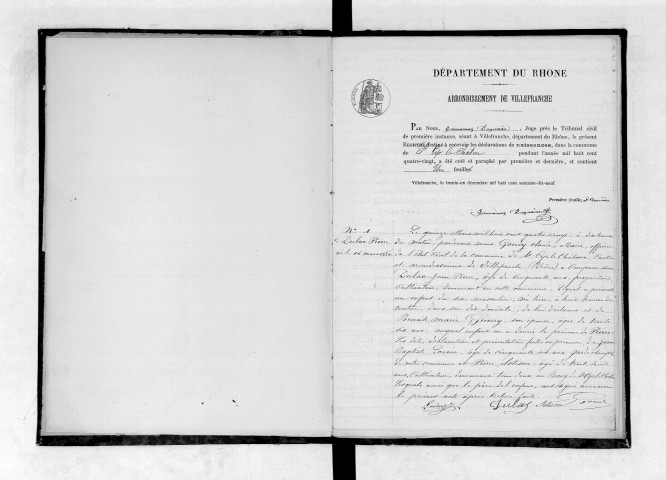 DÉPARTEMENT DU RHONE
ARRONDISSEMENT DE VILLEFRANCHE
PAR NOUS, Juge près le Tribunal civil
de première instance, séant à Villefranche, département du Rhône, le présent
REGISTRE destiné à recevoir les déclarations de naissances, dans la commune
de St Cyr le Chatoux pendant l'année mil huit cent
quatre-vingt, a été coté et paraphé par première et dernière, et contient
Un feuillet
Villefranche, le trente-un décembre mil huit cent soixante-dix-neuf.
Première feuille,
N° 1
Dulac Pierre
Le quinze Mars mil huit cent quatre vingt à dix heures
du matin par devant nous Maire, officier
de l'état civil de la commune de St Cyr le Chatoux, Canton
et arrondissement de Villefranche (Rhône) a comparu
Dulac Jean Pierre, âgé de cinquante ans, propriétaire
Cultivateur, demeurant en cette commune. Lequel a présenté
un enfant du sexe masculin né hier, à huit heures du
matin, dans son domicile, de lui déclarant et de
Benoite Marie son épouse, âgée de trente
six ans, auquel enfant on a donné le prénom de Pierre
Les dites déclaration et présentation faites en présence de Jean
Baptiste âgé de cinquante six ans, garde champêtre
en cette commune et Pierre âgé de trente huit
ans, Cultivateur, demeurant tous deux au Bourg de St Cyr le Chatoux
Lesquels ainsi que le père de l'enfant, ont signé avec nous
le présent acte après lecture faite.
Dulac